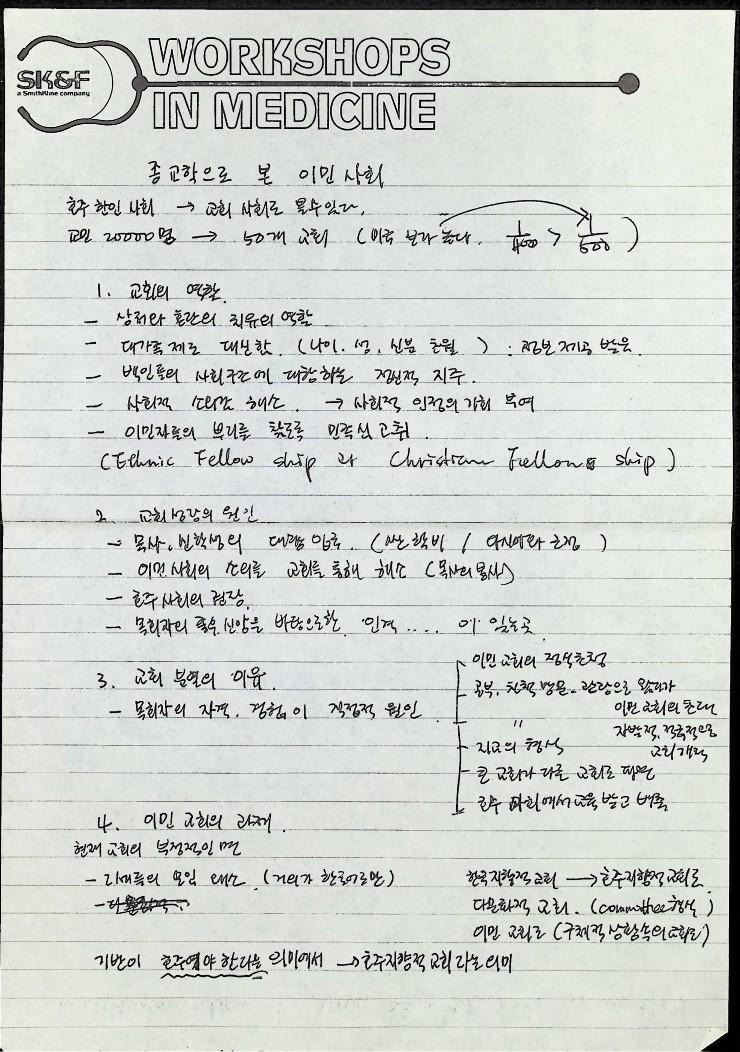 SK&F
a SmithKline company
WORKSHOPS
IN MEDICINE
종교학으로 본 이민사회
호주 한인 사회 → 교회 사회로 볼수있다.
교민 20000명 → 50개 교회 (미국 보다 높다. 1/400 > 1/500 )
1. 교회의 역할.
- 상처와 혼란의 치유의 역할
- 대가족 제도 대신함. (나이. 성. 신분 초월 ) : 정보제공 받음.
- 백인들의 사회구조에 대항하는 정신적 지주.
- 사회적 소외감 해소. → 사회적 인정의 기회 부여
- 이민자들의 뿌리를 찾도록 민족심 고취.
(Ethnic Fellow ship 과 Christian Fellow ship)
2. 교회성장의 원인
- 목사. 신학생의 대량 입국. (싼 학비 / 아시아와 근접 )
- 이민사회의 소외를 교회를 통해 해소 (목사의 봉사)
- 호주 사회의 권장.
- 목회자의 신앙을 바탕으로한 인격 .... 이 있는곳
3. 교회 분열의 이유.
- 목회자의 자격. 경험이 직접적 원인.
이민 교회의 정식초청
공부. 친척 방문. 관광으로 왔다가
이민 교회의 초대
〃 자발적. 적극적으로
교회개척
지교회 형식
큰 교회가 다른 교회로 파견
호주 교회에서 교육 받고 배출
4. 이민 교회의 과제.
현재 교회의 부정적인 면
- 2세들의 모임 (거의가 한국어로만)
한국지향적교회 → 호주지향적교회로
다문화적 교회. (committee형식)
이민 교회로 (구체적 상황속의 교회로)
기반이 호주여야 한다는 의미에서 → 호주지향적 교회라는 의미